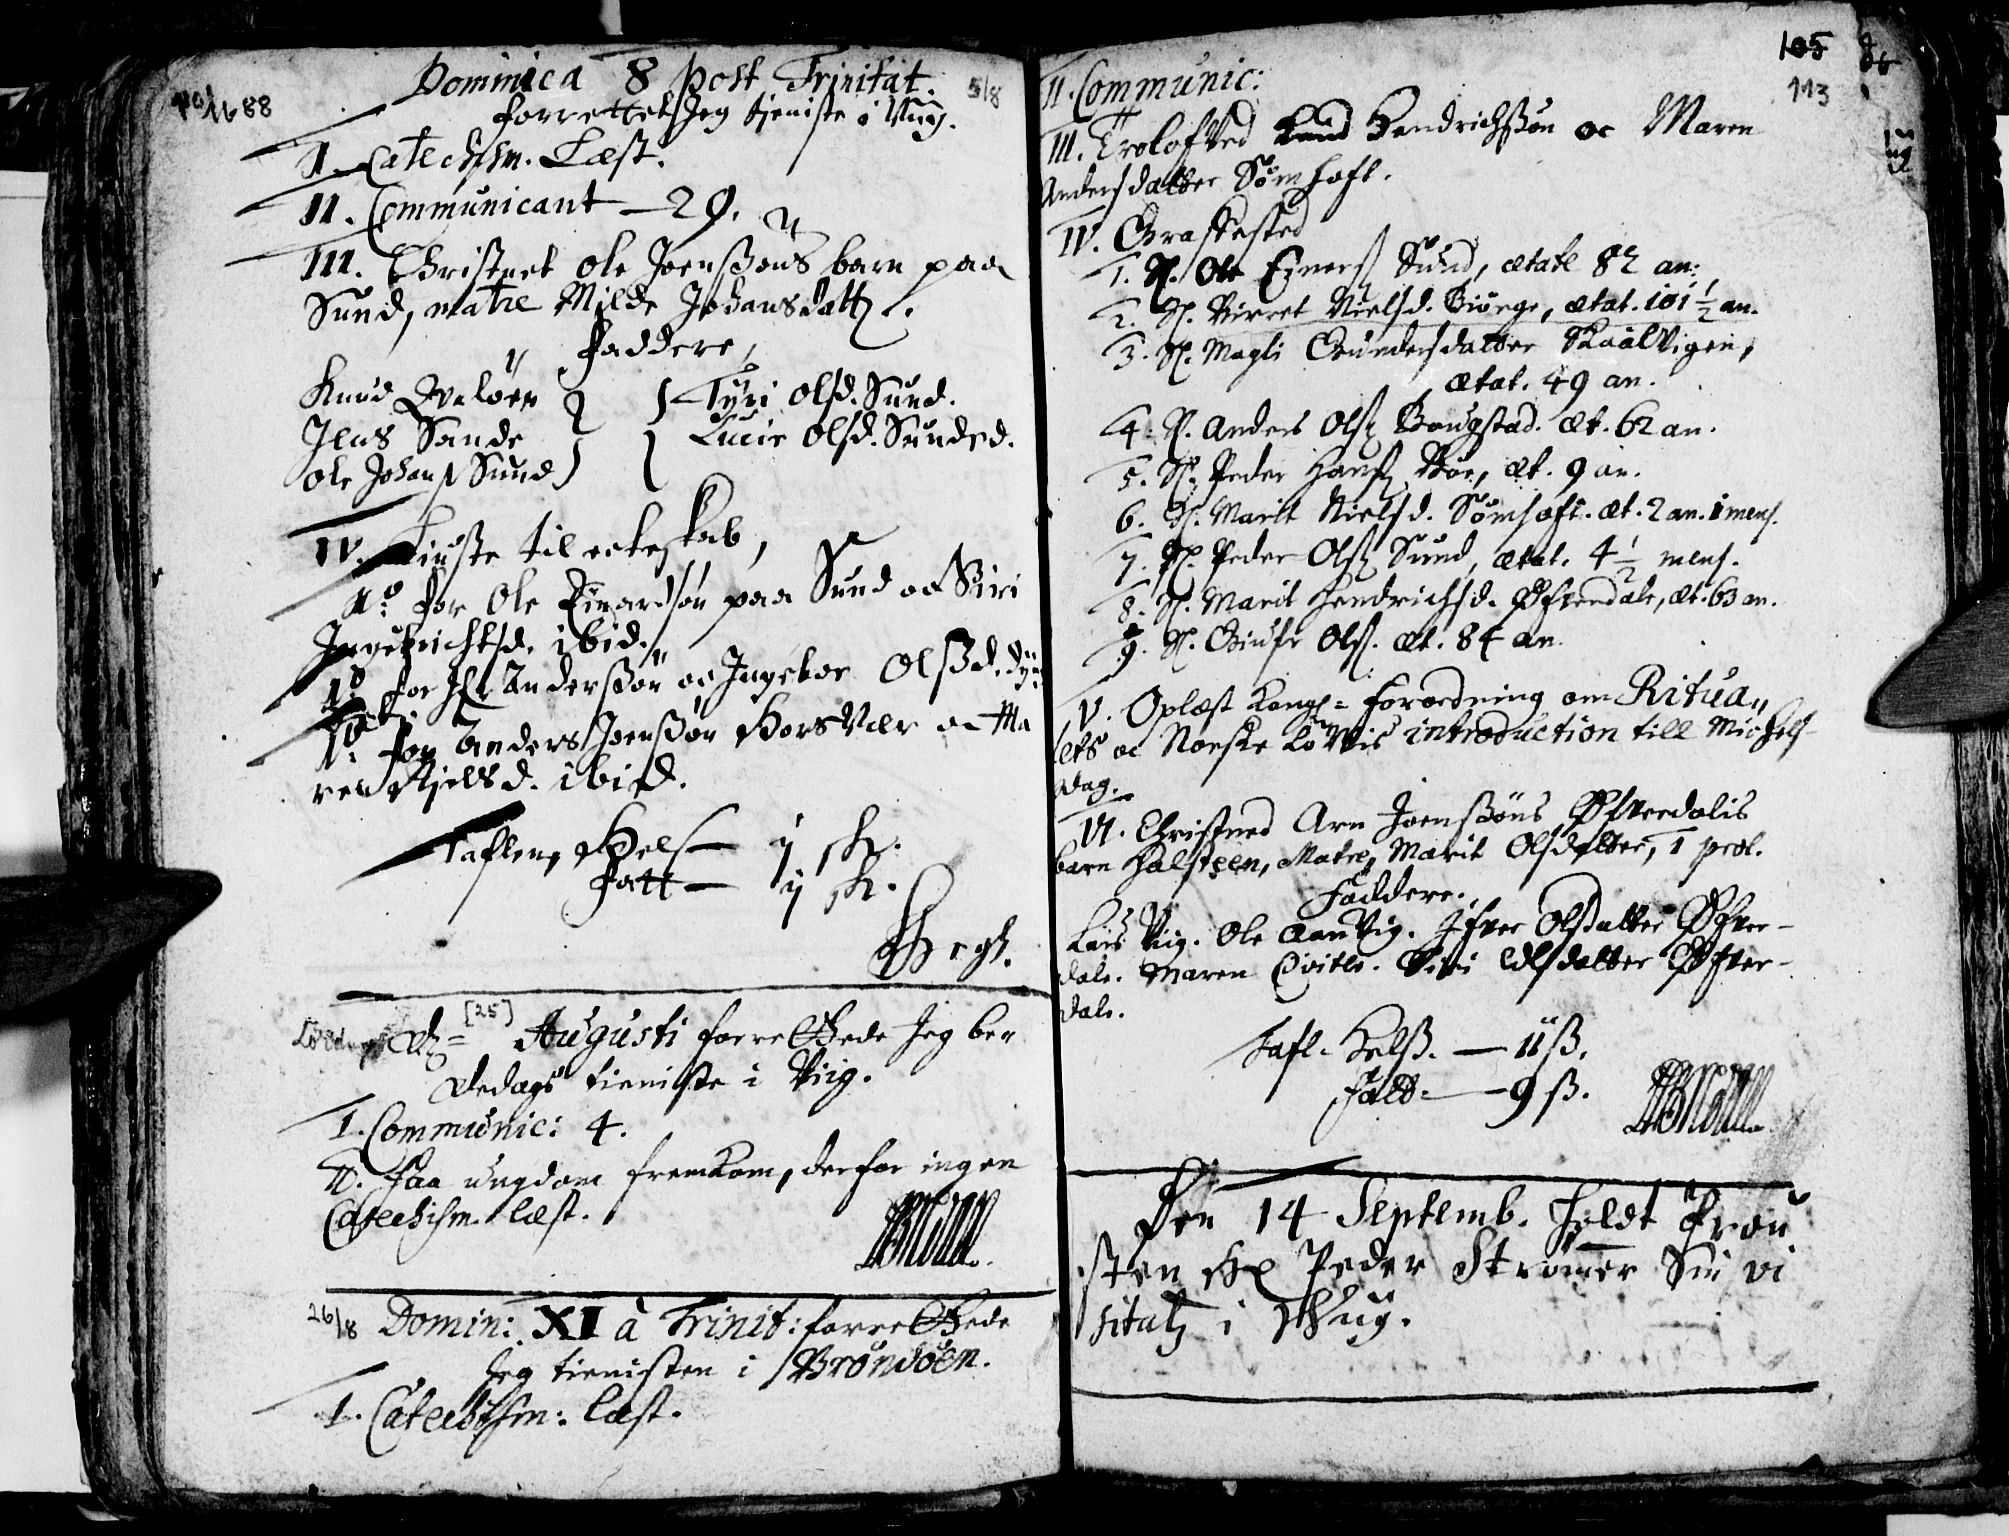 1688
Dominica 8 post Trinitat. 5/8
forrettet Jeg tieniste i Viig.
I. Catechism. Læst.
II. Communicant — 29.
III. Christnet Ole Joenssøns barn paa
Sund, matre Milde Johansdatt.
Faddere,
Knud Tyri Olsd. Sund.
Jens Sande Lucie Olsd. Sunds d.
Ole Johans Sund
IV. til ecteskab,
1º for Ole Einardsøn paa Sund oc Siri
Ingebrichtsd. ibid.
for Anderssøn oc Ingebor Olssd.
for Anders Joenssøn Horsvær oc Ma
ren Kjelsd. ibid.
Taflen, Hels — ij sk.
Fatt — ij sk.
Løverdag [25] Augusti forrettede Jeg be-
dedags tieniste i Viig.
I. Communic: 4.
II. Faa ungdom fremkom, derfor ingen
Catechism. læst.
26/8 Domin: XI à Trinit: forrettede
Jeg tienisten i Brønøen.
I. Catechism: læst.
105
113
II. Communic:
III. Trolofved Hendrichssøn oc Maren
Andersdatter Sømhafl.
IV. Graffæsted
1. Sl. Ole Einers. Sund, ætate 82 an:
2. Sl. Birret Nielsd. Biørge, ætat. 101 1/2 an.
3. Sl. Magli Gundersdatter Skaalvigen,
ætat. 49 an.
4. Sl. Anders Ols. Bougstad. æt. 62 an.
5. Sl. Peder Hans. Boe, æt. 9 an.
6. Sl. Marit Nielsd. Sømhafl. æt. 2 an. 1 mens.
7. Sl. Peder Ols. Sund, ætat. 4 1/2 mens.
8. Sl. Marit Hendrichsd. Øfverdale, æt. 63 an.
9. Sl. Ols. æt. 84 an.
V. Oplæst Kongl= Forordning om Ritua,,
lets oc Norske Lovis introduction till Michels-
dag.
VI. Christned Arn Joenssøns Øfverdalis
barn Halsteen, Matre, Marit Olsdatter, 1 prol.
Faddere.
Lars Viig. Ole Aarvig. Olsdatter Øfver-
dale. Maren Siri Olsdatter Øfver-
dale.
Tafl. Helss. — 11 ß.
Fatt: — 9 ß.
Den 14 Septemb. holdt Prou
sten Hr Peder Strømer Sin vi
sitatz i Viig.